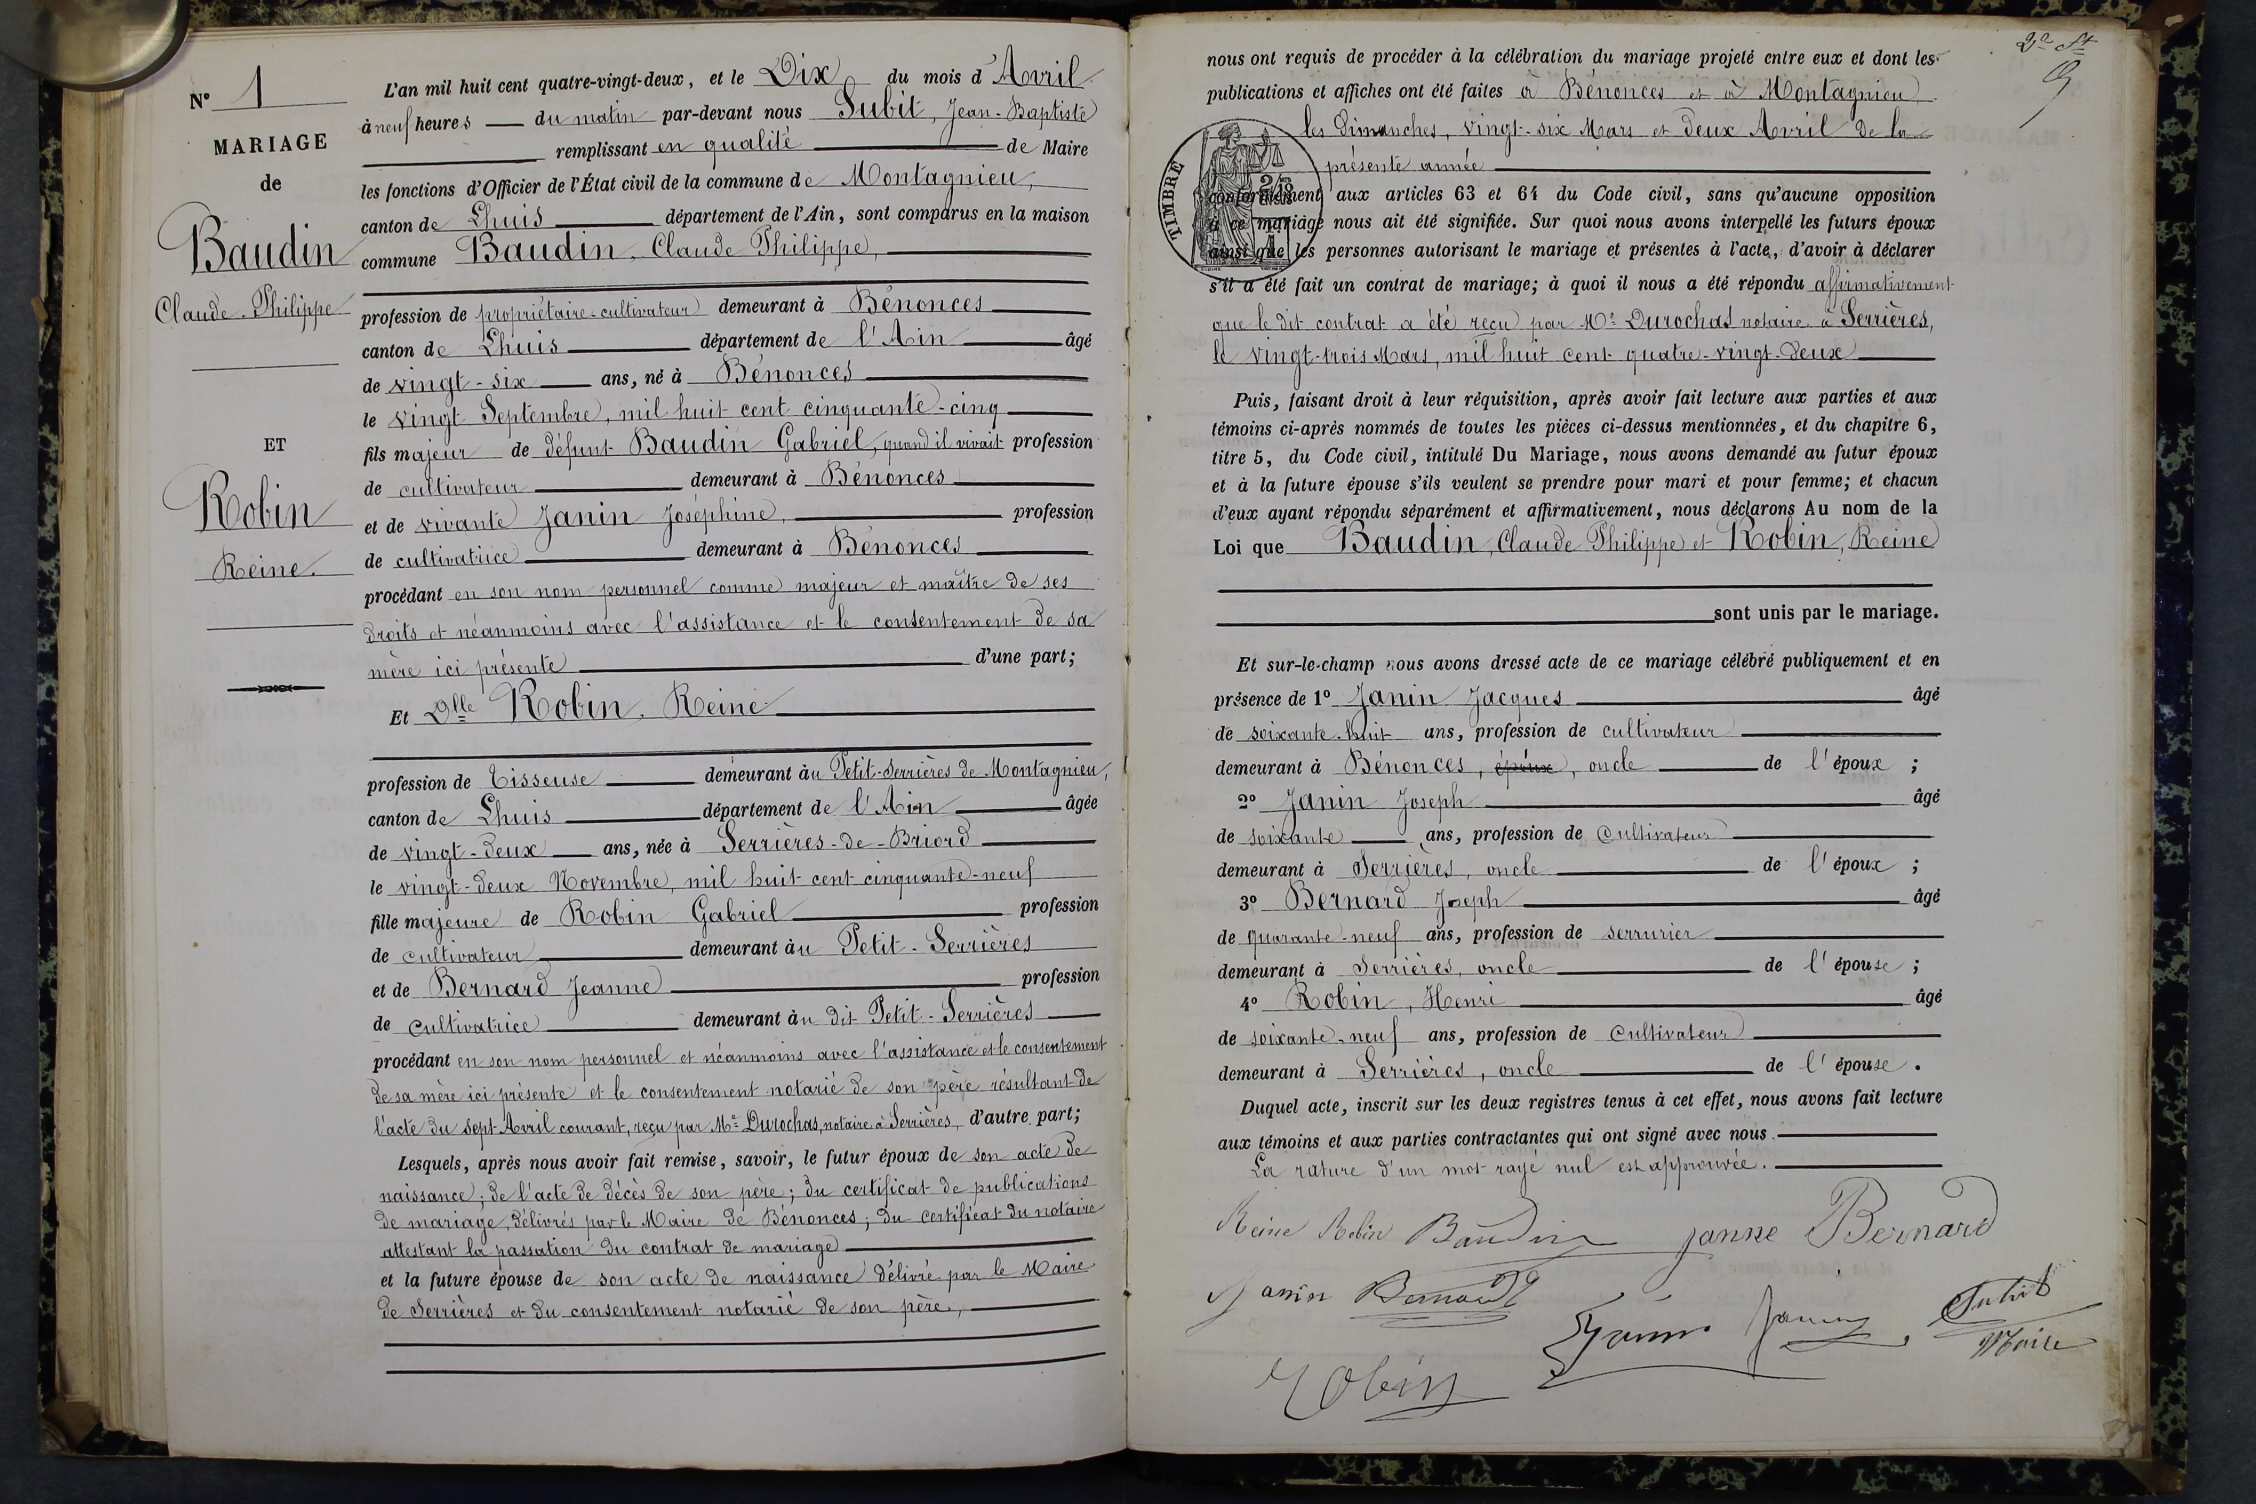 N° 1
MARIAGE
de
Baudin
Claude-Philippe
ET
Robin
Reine.
L'an mil huit cent quatre-vingt-deux, et le Dix du mois d'Avril
à neuf heures du matin par-devant nous Subit, Jean-Baptiste
remplissant en qualité de Maire
les fonctions d'Officier de l'État civil de la commune de Montagnieu,
canton de Lhuis département de l'Ain, sont comparus en la maison
commune Baudin, Claude Philippe,
profession de propriétaire-cultivateur demeurant à Bénonces
canton de Lhuis département de l'Ain âgé
de vingt-six ans, né à Bénonces
le vingt Septembre, mil huit cent cinquante-cinq
fils majeur de défunt Baudin Gabriel, quand il vivait profession
de cultivateur demeurant à Bénonces
et de vivante Janin Joséphine, profession
de cultivatrice demeurant à Bénonces
procédant en son nom personnel comme majeur et maître de ses
droits et néanmoins avec l'assistance et le consentement de sa
mère ici présente d'une part;
Et Dlle Robin, Reine
profession de Tisseuse demeurant au Petit-Serrières de Montagnieu,
canton de Lhuis département de l'Ain âgée
de vingt-deux ans, née à Serrières-de-Briord
le vingt-deux Novembre, mil huit cent cinquante-neuf
fille majeure de Robin Gabriel profession
de cultivateur demeurant au Petit-Serrières
et de Bernard Jeanne profession
de cultivatrice demeurant au dit Petit-Serrières
procédant en son nom personnel et néanmoins avec l'assistance et le consentement
de sa mère ici présente et le consentement notarié de son père résultant de
l'acte du sept Avril courant, reçu par Me Durochas, notaire à Serrières, d'autre part;
Lesquels, après nous avoir fait remise, savoir, le futur époux de son acte de
naissance; de l'acte de décès de son père; du certificat de publications
de mariage, délivrés par le Maire de Bénonces; du certificat du notaire
attestant la passation du contrat de mariage
et la future épouse de son acte de naissance délivré par le Maire
de Serrières et du consentement notarié de son père,
nous ont requis de procéder à la célébration du mariage projeté entre eux et dont les
publications et affiches ont été faites à Bénonces et à Montagnieu
les Dimanches, vingt-six Mars et deux Avril de la
présente année
TIMBRE
conformément aux articles 63 et 64 du Code civil, sans qu'aucune opposition
à ce mariage nous ait été signifiée. Sur quoi nous avons interpellé les futurs époux
ainsi que les personnes autorisant le mariage et présentes à l'acte, d'avoir à déclarer
s'il a été fait un contrat de mariage; à quoi il nous a été répondu affirmativement
que le dit contrat a été reçu par Me Durochas notaire à Serrières,
le vingt-trois Mars, mil huit cent quatre-vingt-deux
Puis, faisant droit à leur réquisition, après avoir fait lecture aux parties et aux
témoins ci-après nommés de toutes les pièces ci-dessus mentionnées, et du chapitre 6,
titre 5, du Code civil, intitulé Du Mariage, nous avons demandé au futur époux
et à la future épouse s'ils veulent se prendre pour mari et pour femme; et chacun
d'eux ayant répondu séparément et affirmativement, nous déclarons Au nom de la
Loi que Baudin, Claude Philippe et Robin, Reine
sont unis par le mariage.
Et sur-le-champ nous avons dressé acte de ce mariage célébré publiquement et en
présence de 1° Janin Jacques âgé
de soixante-huit ans, profession de cultivateur
demeurant à Bénonces, époux, oncle de l'époux ;
2° Janin Joseph âgé
de soixante ans, profession de cultivateur
demeurant à Serrières, oncle de l'époux ;
3° Bernard Joseph âgé
de quarante-neuf ans, profession de serrurier
demeurant à Serrières, oncle de l'épouse ;
4° Robin, Henri âgé
de soixante-neuf ans, profession de cultivateur
demeurant à Serrières, oncle de l'épouse.
Duquel acte, inscrit sur les deux registres tenus à cet effet, nous avons fait lecture
aux témoins et aux parties contractantes qui ont signé avec nous.
La rature d'un mot rayé nul est approuvée.
Reine Robin Baudin janne Bernard
Janin Bernard
Janin Subit
Maire
Robin